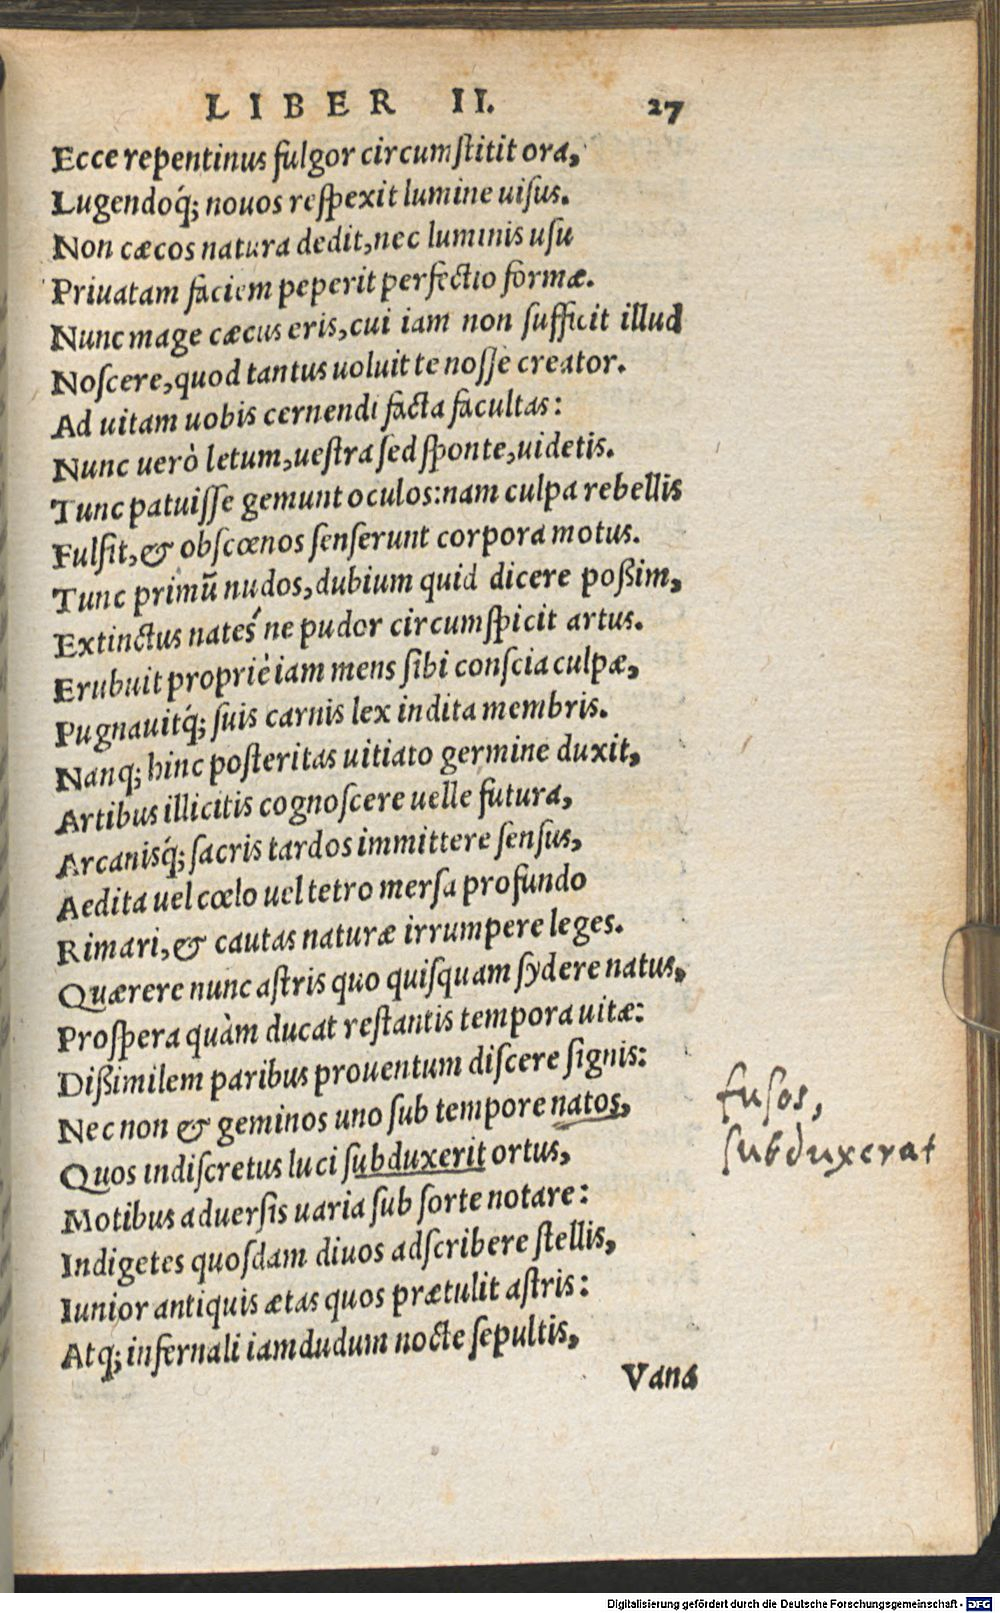 LIBER II. 27
Ecce repentinus fulgor circumſtitit ora,
Lugendoq́; nouos reſpexit lumine uiſus.
Non cæcos natura dedit, nec luminis uſu
Priuatam faciem peperit perfectio formæ.
Nunc mage cæcus eris, cui iam non ſufficit illud
Noſcere, quod tantus uoluit te noſſe creator.
Ad uitam uobis cernendi facta facultas:
Nunc uerò letum, ueſtra ſed ſponte, uidetis.
Tunc patuiſſe gemunt oculos: nam culpa rebellis
Fulſit, & obſcœnos ſenſerunt corpora motus.
Tunc primū nudos, dubium quid dicere poßim,
Extinctus nateś ne pudor circumſpicit artus.
Erubuit propriè iam mens ſibi conſcia culpæ,
Pugnauitq́; ſuis carnis lex indita membris.
Nanq; hinc poſteritas uitiato germine duxit,
Artibus illicitis cognoſcere uelle futura,
Arcanisq́; ſacris tardos immittere ſenſus,
Aedita uel cœlo uel tetro merſa profundo
Rimari, & cautas naturæ irrumpere leges.
Quærere nunc aſtris quo quiſquam ſydere natus,
Proſpera quàm ducat reſtantis tempora uitæ:
Dißimilem paribus prouentum diſcere ſignis:
Nec non & geminos uno ſub tempore natos,
fuſos,
Quos indiſcretus luci ſubduxerit ortus,
ſubduxerat
Motibus aduerſis uaria ſub ſorte notare:
Indigetes quoſdam diuos adſcribere ſtellis,
Iunior antiquis ætas quos prætulit aſtris:
Atq; infernali iamdudum nocte ſepultis,
Vana
Digitalisierung gefördert durch die Deutsche Forschungsgemeinschaft - DFG